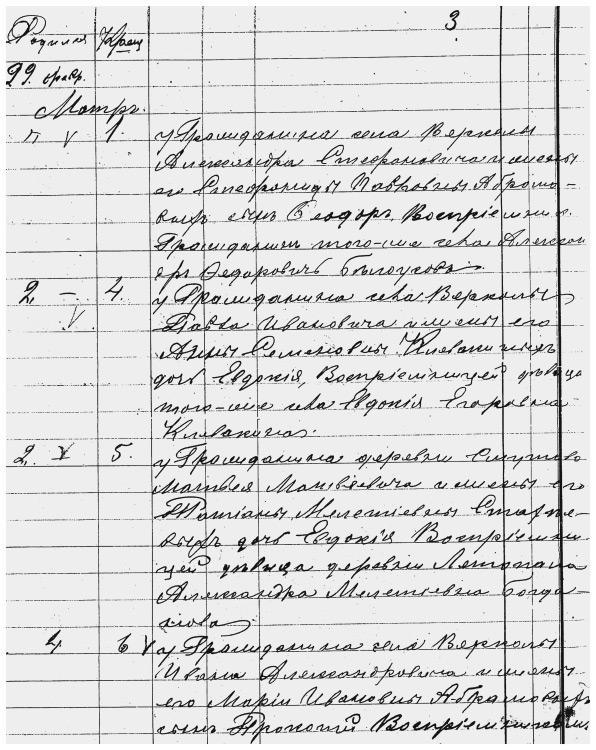 Родился Крещ. 3
29. февр.
Мартъ.
1. у Гражданина села Верколы
Александра Стефановича и жены
его Стефаниды Павловны Абрамо-
выхъ сынъ Ѳеодоръ. Воспріемник
Гражданинъ того-же села Алексан
дръ Ѳедоровичъ Бѣлоусовъ.
2. - 4. у Гражданина села Верколы
Павла Ивановича и жены его
Анны Семеновны Клевакиныхъ
дочь Евдокія, Воспріемницей дѣвица
того-же села Евдокія Егоровна
Клевакина.
2. 5. у Гражданина деревни
Матвея Матвѣевича и жены его
Татіаны Мелетіевны Старце-
выхъ дочь Евдокія Воспріемни-
цей дѣвица деревни Летопала
Александра Мелетіевна Богда-
нова
4 6 у Гражданина села Верколы
Ивана Александровича и жены
его Маріи Ивановны Абрамовыхъ
сынъ Прокопій Воспріемникомъ